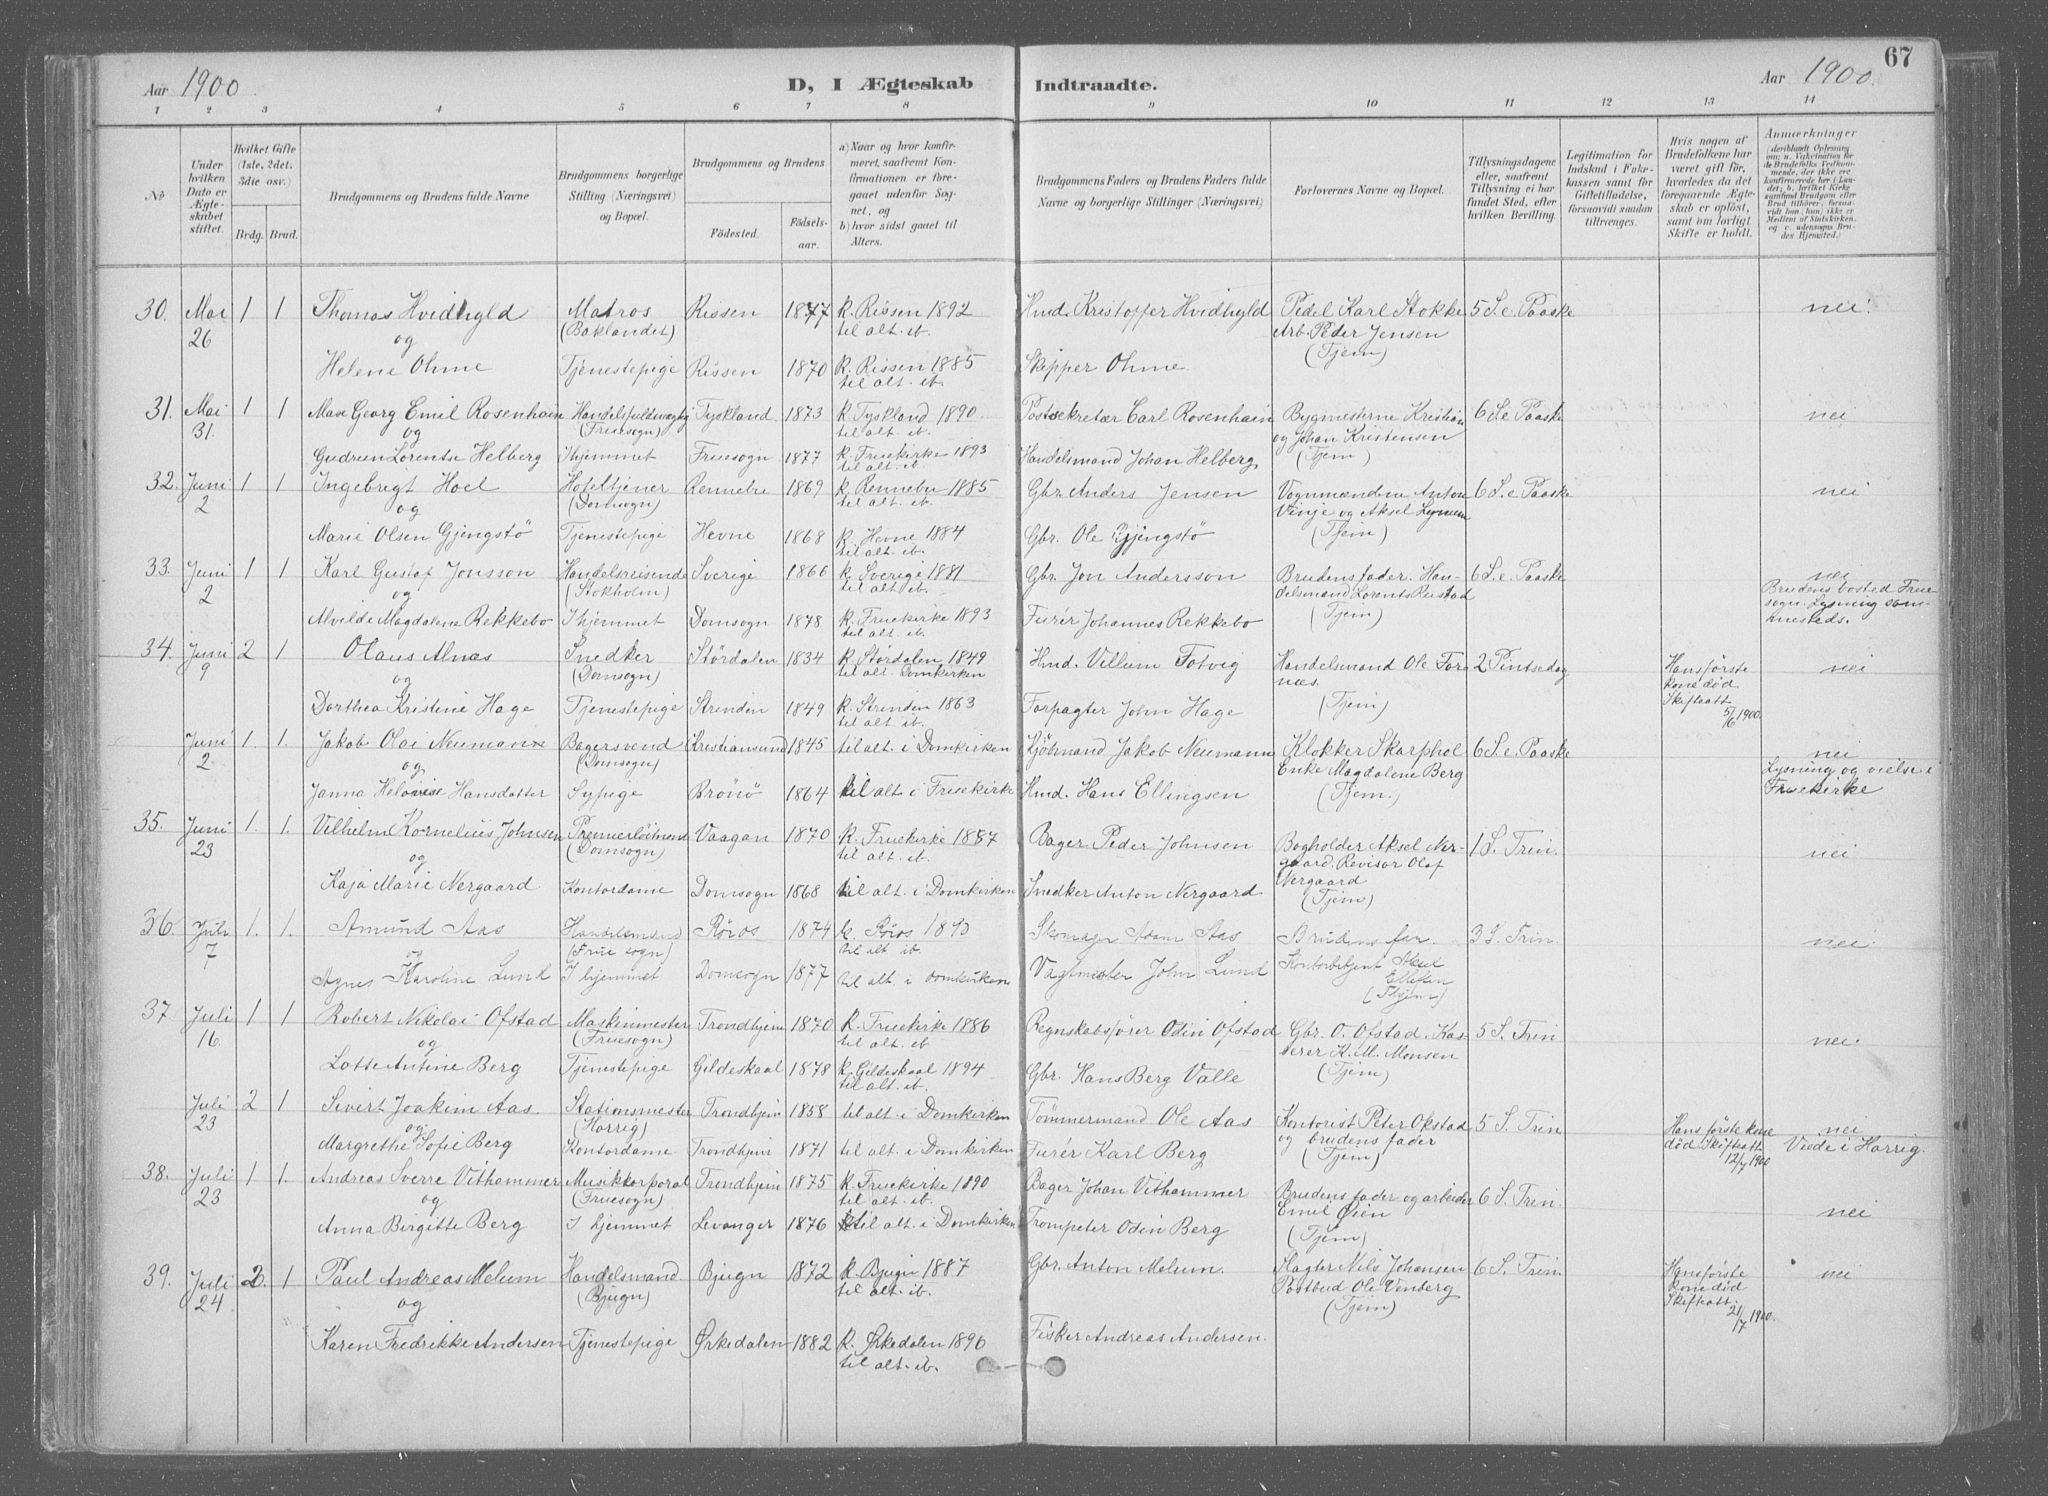 67
Aar 1900. D, I Ægteskab Indtraadte. Aar 1900.
1 2 3 4 5 6 7 8 9 10 11 12 13 14
No
Under hvilken Dato er Ægteskabet stiftet.
Hvilket Gifte (1ste, 2det, 3die osv.)
Brdg. Brud.
Brudgommens og Brudens fulde Navne
Brudgommens borgerlige Stilling (Næringsvei) og Bopæl.
Brudgommens og Brudens
Fødested.
Fødselsaar.
a) Naar og hvor konfirmeret, saafremt Konfirmationen er foregaaet udenfor Sognet, og
b) hvor sidst gaaet til Alters.
Brudgommens Faders og Brudens Faders fulde Navne og borgerlige Stillinger (Næringsvei)
Forlovernes Navne og Bopæl.
Tillysningsdagene eller, saafremt Tillysning ei har fundet Sted, efter hvilken Bevilling.
Legitimation for Indskud i Enkekassen samt for Giftetilladelse, forsaavidt saadan tiltrænges.
Hvis nogen af Brudefolkene har været gift før, hvorledes da det foregaaende Ægteskab er opløst, samt om lovligt Skifte er holdt.
Anmærkninger
30. Mai 26 1 1 Thomas Hvidhyld Matros (Baklandet) Rissen 1877 k. Rissen 1892 til alt. ib. Hmd. Kristoffer Hvidhyld Pedel Karl Stokke Arb. Peder Jensen (Tjem) 5 S. e. Paaske nei.
og
Helene Ohme Tjenestepige Rissen 1870 k. Rissen 1885 til alt. ib. Skipper Ohme
31. Mai 31. 1 1 Max Georg Emil Rosenhain Handelsfuldmægtig (Fruesogn) Tyskland 1873 k. Tyskland 1890 til alt. ib. Postsekretær Carl Rosenhain Bygmesterne Kristian og Johan Kristensen (Tjem) 6 S. e. Paaske nei
og
Gudrun Lorentse Helberg I hjemmet Fruesogn 1877 k. Fruekirke 1893 til alt. ib. Handelsmand Johan Helberg
32. Juni 2 1 1 Ingebrigt Hoel Hoteltjener (Domsogn) Rennebu 1869 k. Rennebu 1885 til alt. ib. Gbr. Anders Jensen Vognmændene Anton Vinje og Aksel (Tjem) 6 S. e. Paaske nei
og
Marie Olsen Gjengstö Tjenestepige Hevne 1868 k. Hevne 1884 til alt. ib. Gbr. Ole Gjengstö
33. Juni 2 1 1 Karl Gustaf Jonsson Handelsreisende (Stokholm) Sverige 1866 k. Sverige 1881 til alt. ib. Gbr. Jon Andersson Brudens fader. Handelsmand Lorents (Tjem) 6 S. e. Paaske nei Brudens bosted Fruesogn. Lysning sammesteds.
og
Alvilde Magdalene Rekkebo I hjemmet Domsogn 1878 k. Fruekirke 1893 til alt. ib. Furér Johannes Rekkebo
34. Juni 9 2 1 Olaus Alnæs Snedker (Domsogn) Stördalen 1834 k. Stördalen 1849 til alt. Domkirken Hmd. Villum Fotvig Handelsmand Ole Fornæs. (Tjem) 2 Pintsedag Hans første kone død Skifteatt. 5/6 1900. nei
og
Dorthea Kristine Hage Tjenestepige Strinden 1849 k. Strinden 1863 til alt. ib. Forpagter John Hage
Juni 2 1. 1. Jakob Olai Neumann Bagersvend (Domsogn) Kristiansund 1845 til alt. i Domkirken Kjöbmand Jakob Neumann Klokker Skarphol Enke Magdalene Berg (Tjem.) 6 S. e. Paaske nei Lysning og vielse i Fruekirke
og
Janna Helovise Hansdatter Sypige Brönö 1864 til alt i Fruekirke Hmd. Hans Ellingsen
35. Juni 23 1. 1. Vilhelm Kornelius Johnsen Premierlöitnant (Domsogn) Vaagan 1870 k. Fruekirke 1887 til alt. ib. Bager Peder Johnsen Bogholder Aksel Nergaard. Revisor Olaf Nergaard (Tjem) 1 S. Trin. nei
og
Kaja Marie Nergaard Kontordame Domsogn 1868 til alt. i Domkirken Snedker Anton Nergaard
36. Juli 7 1. 1. Amund Aas Handelsmand (Frue sogn) Röros 1874 k. Röros 1890 til alt. ib. Skomager Adam Aas Brudens far. Kontorbetjent Aksel Ellefsen (Thjem) 3 S. Trin. nei.
og
Agnes Karoline Lund I hjemmet Domsogn 1877 til alt. i domkirken Vagtmester John Lund
37. Juli 16. 1 1 Robert Nikolai Ofstad Maskinmester (Fruesogn) Trondhjem 1870 k. Fruekirke 1886 til alt. ib Regnskabsfører Odin Ofstad Gbr. O. Ofstad. Kasserer K. M. Monsen (Tjem) 5 S. Trin nei.
og
Lotte Antine Berg Tjenestepige Gildeskaal 1878 k. Gildeskaal 1894 til alt. ib. Gbr. Hans Berg Valle
Juli 23 2 1 Sivert Joakim Aas. Stationsmester (Harrig) Trondhjem 1858 til alt i Domkirken Tömmermand Ole Aas Kontorist Peter Okstad og brudens fader (Tjem) 5 S. Trin Hans første kone død Skifteatt. 12/7 1900 nei Viede i Harrig.
og
Margrethe Sofie Berg Kontordame Trondhjem 1871 til alt. i Domkirken Furér Karl Berg
38. Juli 23 1 1. Andreas Sverre Vithammer Musikkorporal (Fruesogn) Trondhjem 1875 k. Fruekirke 1890 til alt. ib. Bager Johan Vithammer Brudens fader og arbeider Emil Øien (Tjem) 6 S. Trin. nei
og
Anna Birgitte Berg I hjemmet Levanger 1876 til alt. i Domkirken Trompeter Odin Berg
39. Juli 24 2. 1 Paul Andreas Melum Handelsmand (Bjugn) Bjugn 1872 k. Bjugn 1887 til alt. ib. Gbr. Anton Melum. Slagter Nils Johansen Postbud Ole Venberg (Tjem) 6 S. Trin. Hans første kone død Skifteatt. 21/7 1900. nei
og
Karen Fredrikke Andersen Tjenestepige Ørkedalen 1882 k. Ørkedalen 1896 til alt. ib. Fisker Andreas Andersen.